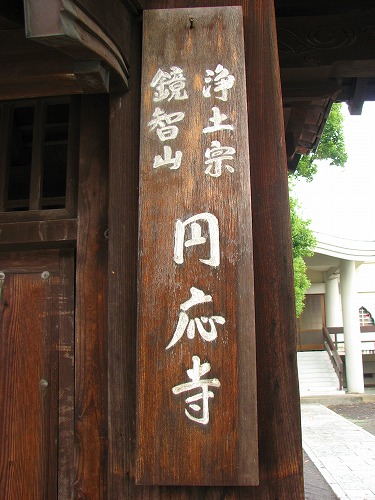 浄土宗
鏡智山
円応寺